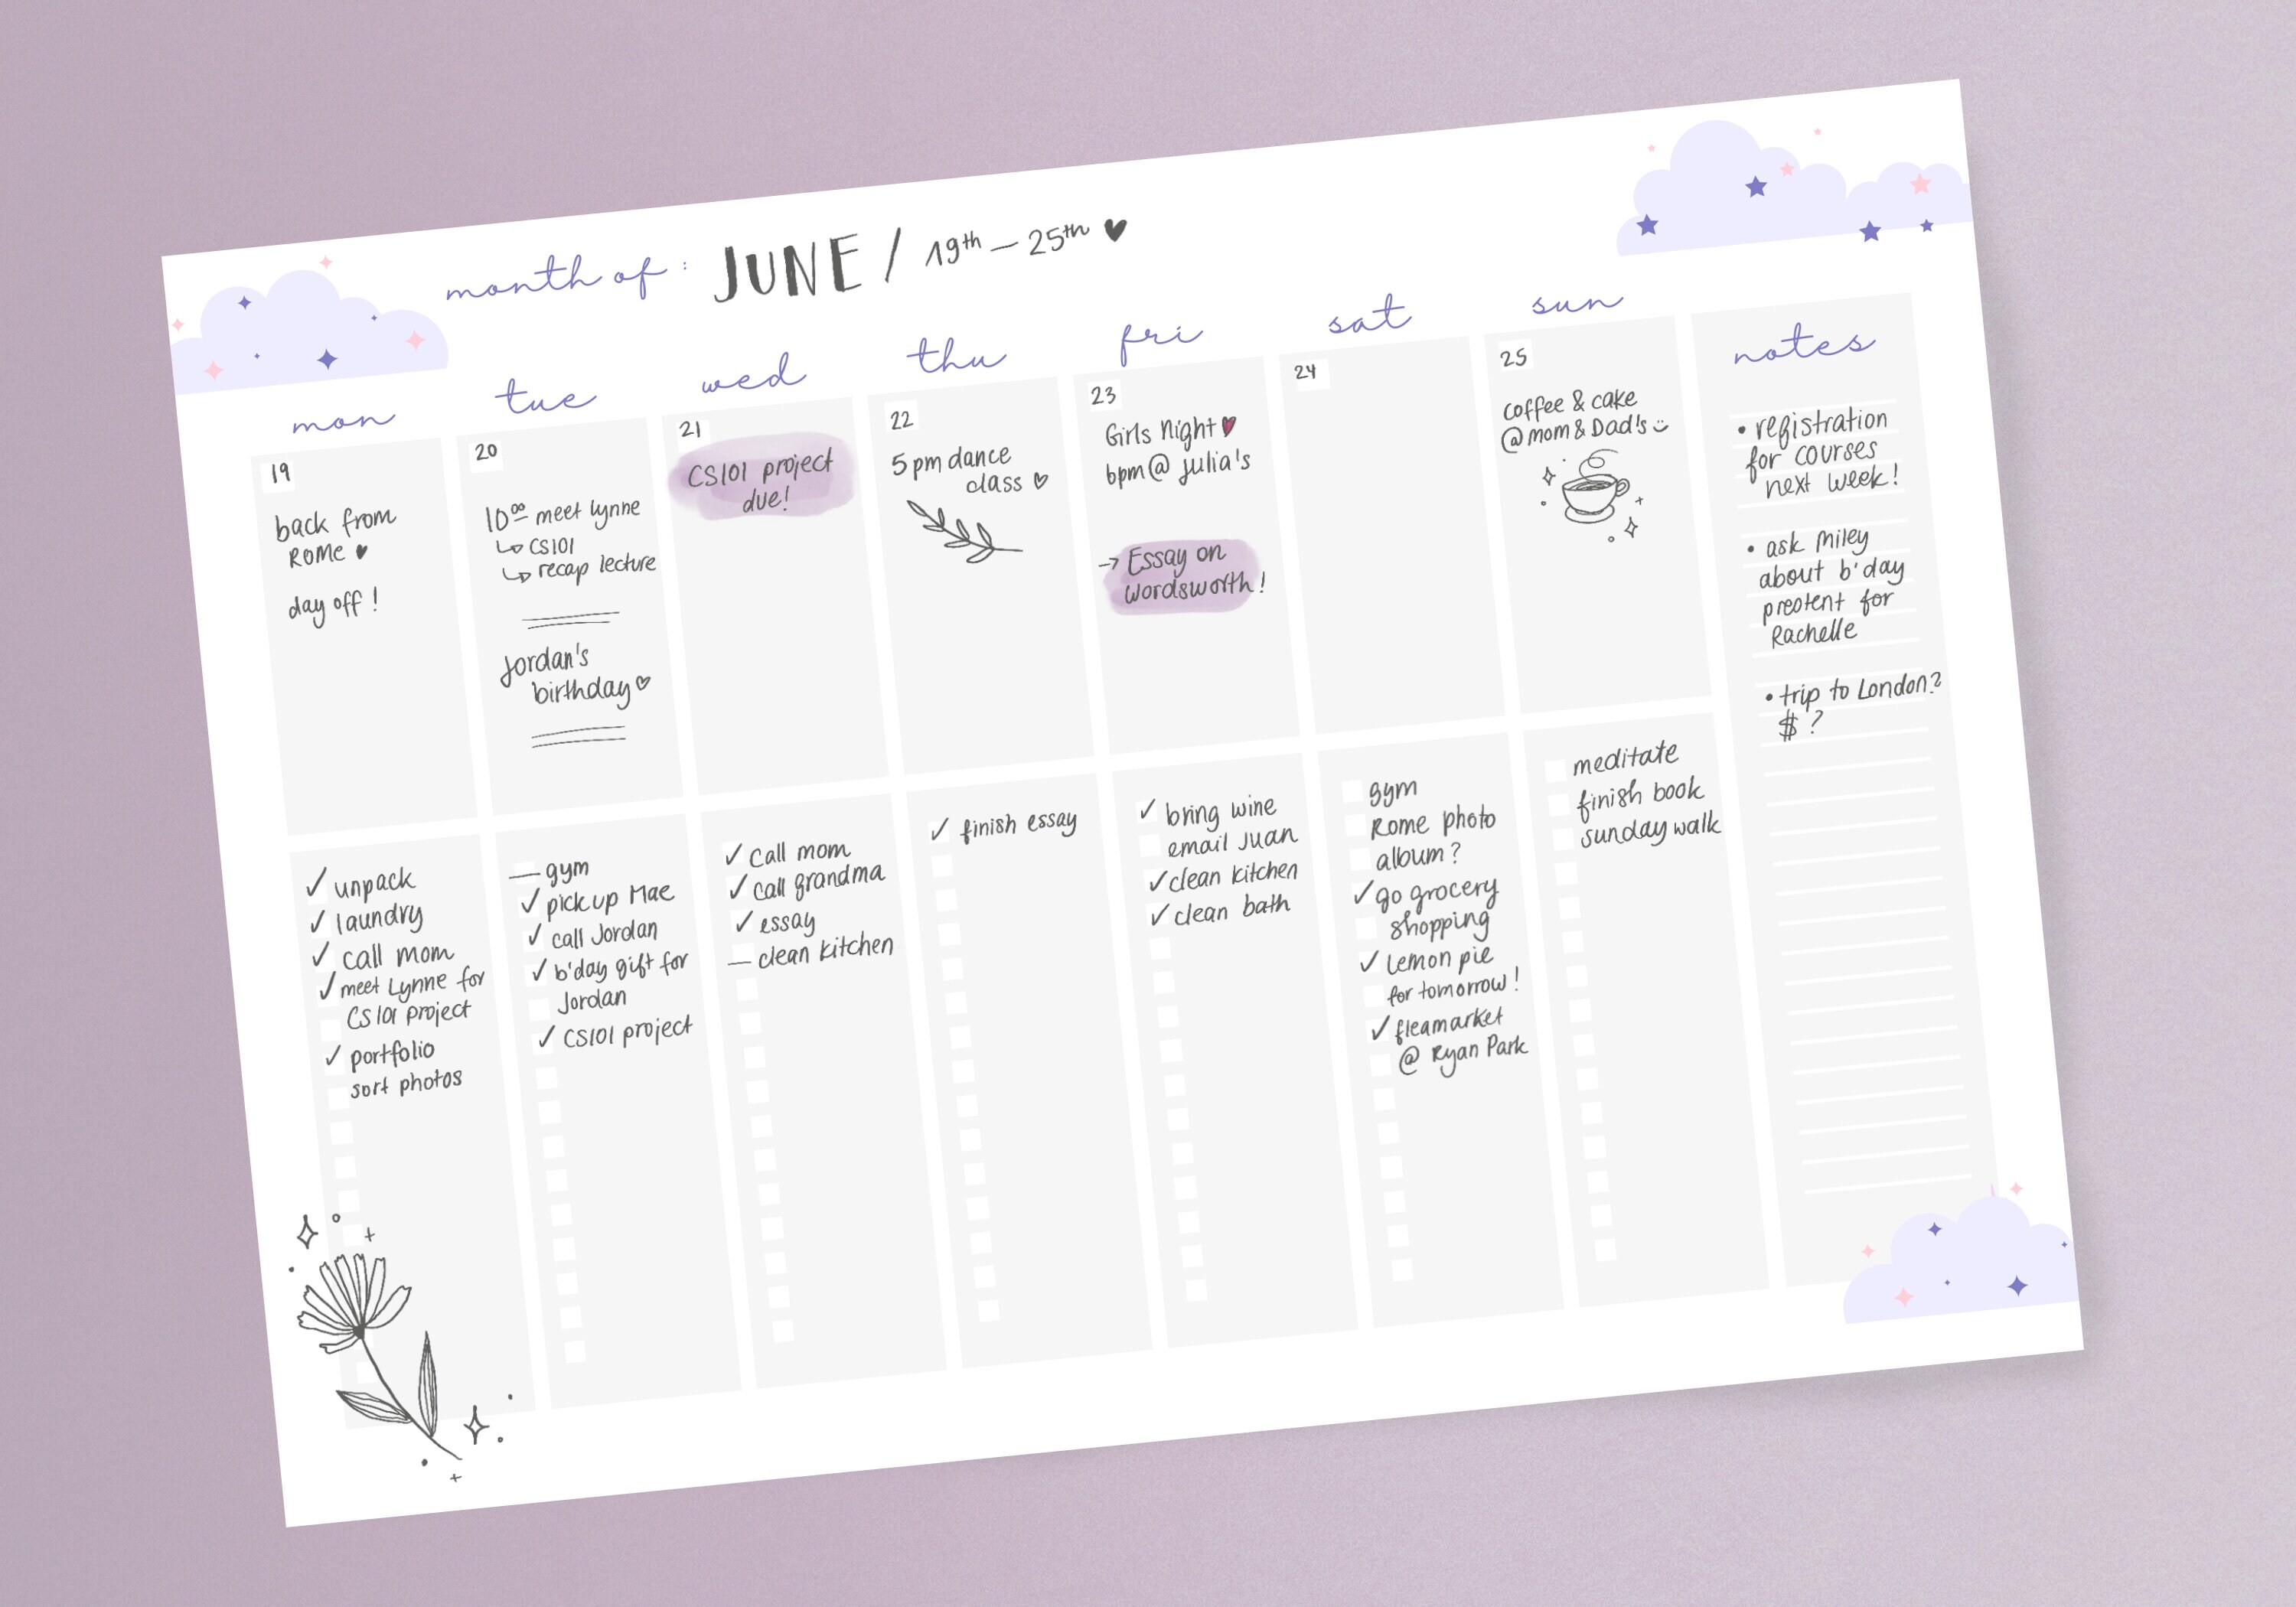 month of: JUNE / 19th — 25th ♥
mon
19
back from
Rome ♥
day off!
✓ unpack
✓ laundry
✓ call mom
✓ meet Lynne for
CS101 project
✓ portfolio
sort photos
tue
20
10⁰⁰ meet Lynne
↳ CS101
↳ recap lecture
Jordan's
birthday ♡
— gym
✓ pick up Mae
✓ call Jordan
✓ b'day gift for
Jordan
✓ CS101 project
wed
21
CS101 project
due!
✓ call mom
✓ call grandma
✓ essay
— clean kitchen
thu
22
5pm dance
class ♡
✓ finish essay
fri
23
Girls Night ♥
6pm @ Julia's
→ Essay on
Wordsworth!
✓ bring wine
email Juan
✓ clean kitchen
✓ clean bath
sat
24
gym
Rome photo
album?
✓ go grocery
shopping
✓ Lemon pie
for tomorrow!
✓ fleamarket
@ Ryan Park
sun
25
coffee & cake
@ mom & Dad's
meditate
finish book
sunday walk
notes
• registration
for courses
next week!
• ask Miley
about b'day
preotent for
Rachelle
• trip to London?
$ ?